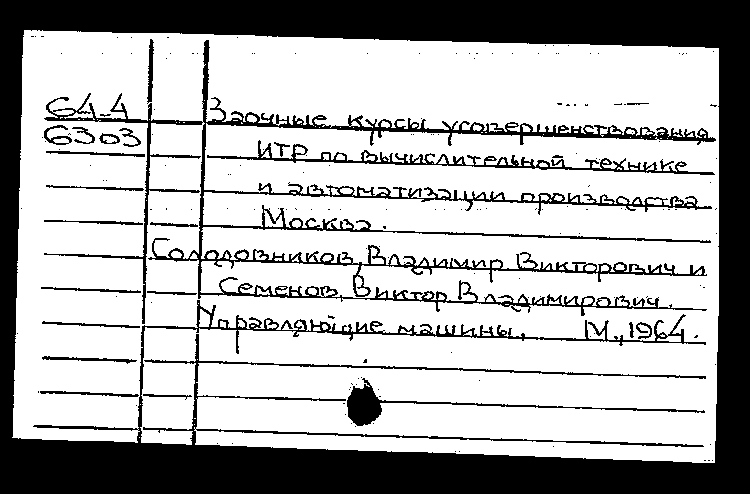 64-4 Заочные курсы усовершенствования
6303 ИТР по вычислительной технике
и автоматизации производства
Москва.
Солодовников, Владимир Викторович и
Семенов, Виктор Владимирович.
Управляющие машины. М., 1964.